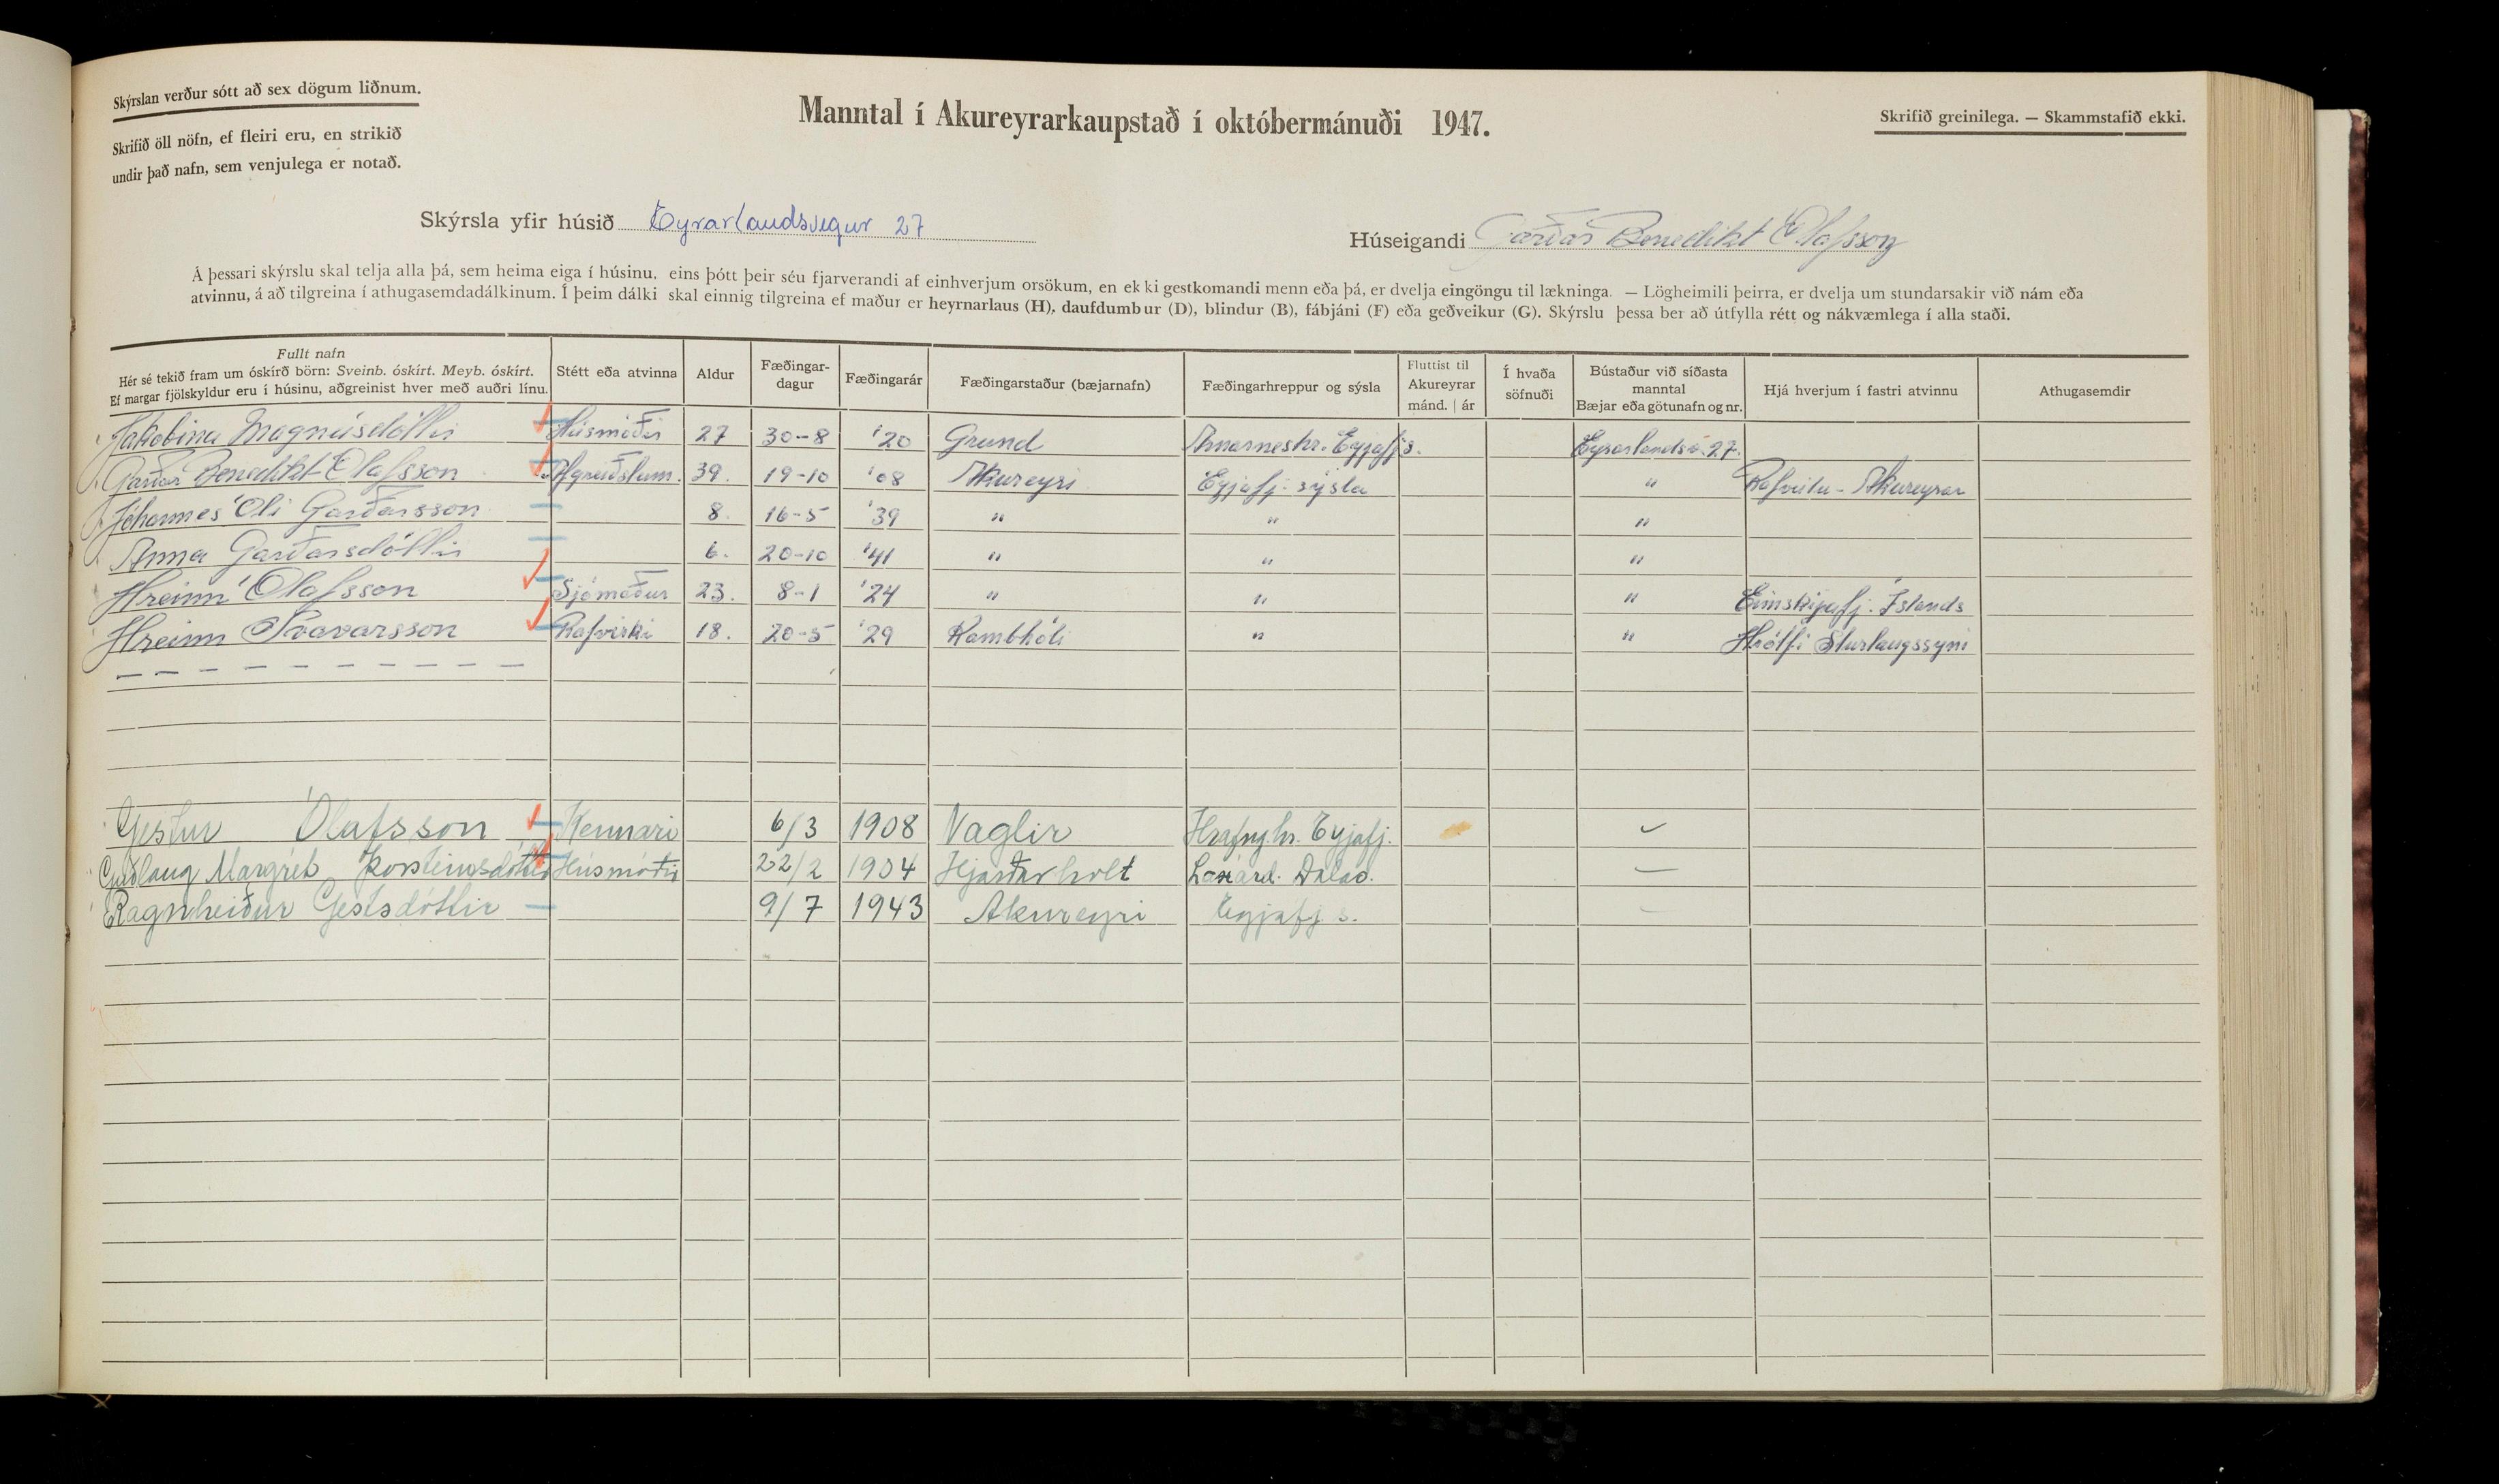 Skýrslan verður sótt að sex dögum liðnum.
Skrifið öll nöfn, ef fleiri eru, en strikið
undir það nafn, sem venjulega er notað.
Manntal í Akureyrarkaupstað í októbermánuði 1947.
Skrifið greinilega. — Skammstafið ekki.
Skýrsla yfir húsið Eyrarlandsvegur 27
Húseigandi Garðar Benedikt Ólafsson
Á þessari skýrslu skal telja alla þá, sem heima eiga í húsinu, eins þótt þeir séu fjarverandi af einhverjum orsökum, en ekki gestkomandi menn eða þá, er dvelja eingöngu til lækninga. — Lögheimili þeirra, er dvelja um stundarsakir við nám eða
atvinnu, á að tilgreina í athugasemdadálkinum. Í þeim dálki skal einnig tilgreina ef maður er heyrnarlaus (H), daufdumbur (D), blindur (B), fábjáni (F) eða geðveikur (G). Skýrslu þessa ber að útfylla rétt og nákvæmlega í alla staði.
Fullt nafn
Hér sé tekið fram um óskírð börn: Sveinb. óskírt. Meyb. óskírt.
Ef margar fjölskyldur eru í húsinu, aðgreinist hver með auðri línu.
Stétt eða atvinna
Aldur
Fæðingar-
dagur
Fæðingarár
Fæðingarstaður (bæjarnafn)
Fæðingarhreppur og sýsla
Fluttist til
Akureyrar
mánd. | ár
Í hvaða
söfnuði
Bústaður við síðasta
manntal
Bæjar eða götunafn og nr.
Hjá hverjum í fastri atvinnu
Athugasemdir
Jakobína Magnúsdóttir Húsmóðir 27 30-8 '20 Grund Arnarneshr. Eyjafj.s. Eyrarlandsv. 27.
Garðar Benedikt Ólafsson Afgreiðslum. 39. 19-10 '08 Akureyri Eyjafj. sýsla " Rafveitu - Akureyrar
Jóhannes Óli Garðarsson 8. 16-5 '39 " " "
Anna Garðarsdóttir 6. 20-10 '41 " " "
Hreinn Ólafsson Sjómaður 23. 8-1 '24 " " " Eimskipafj. Íslands
Hreinn Svavarsson Rafvirki 18. 20-5 '29 Kambhóli " " Hrólfi Sturlaugssyni
Gestur Ólafsson Kennari 6/3 1908 Vaglir Hrafng.hr. Eyjafj.
Guðlaug Margrét Þorsteinsdóttir Húsmóðir 22/2 1904 Hjarðarholt Laxárd. Dalas.
Ragnheiður Gestsdóttir 9/7 1943 Akureyri Eyjafj s.